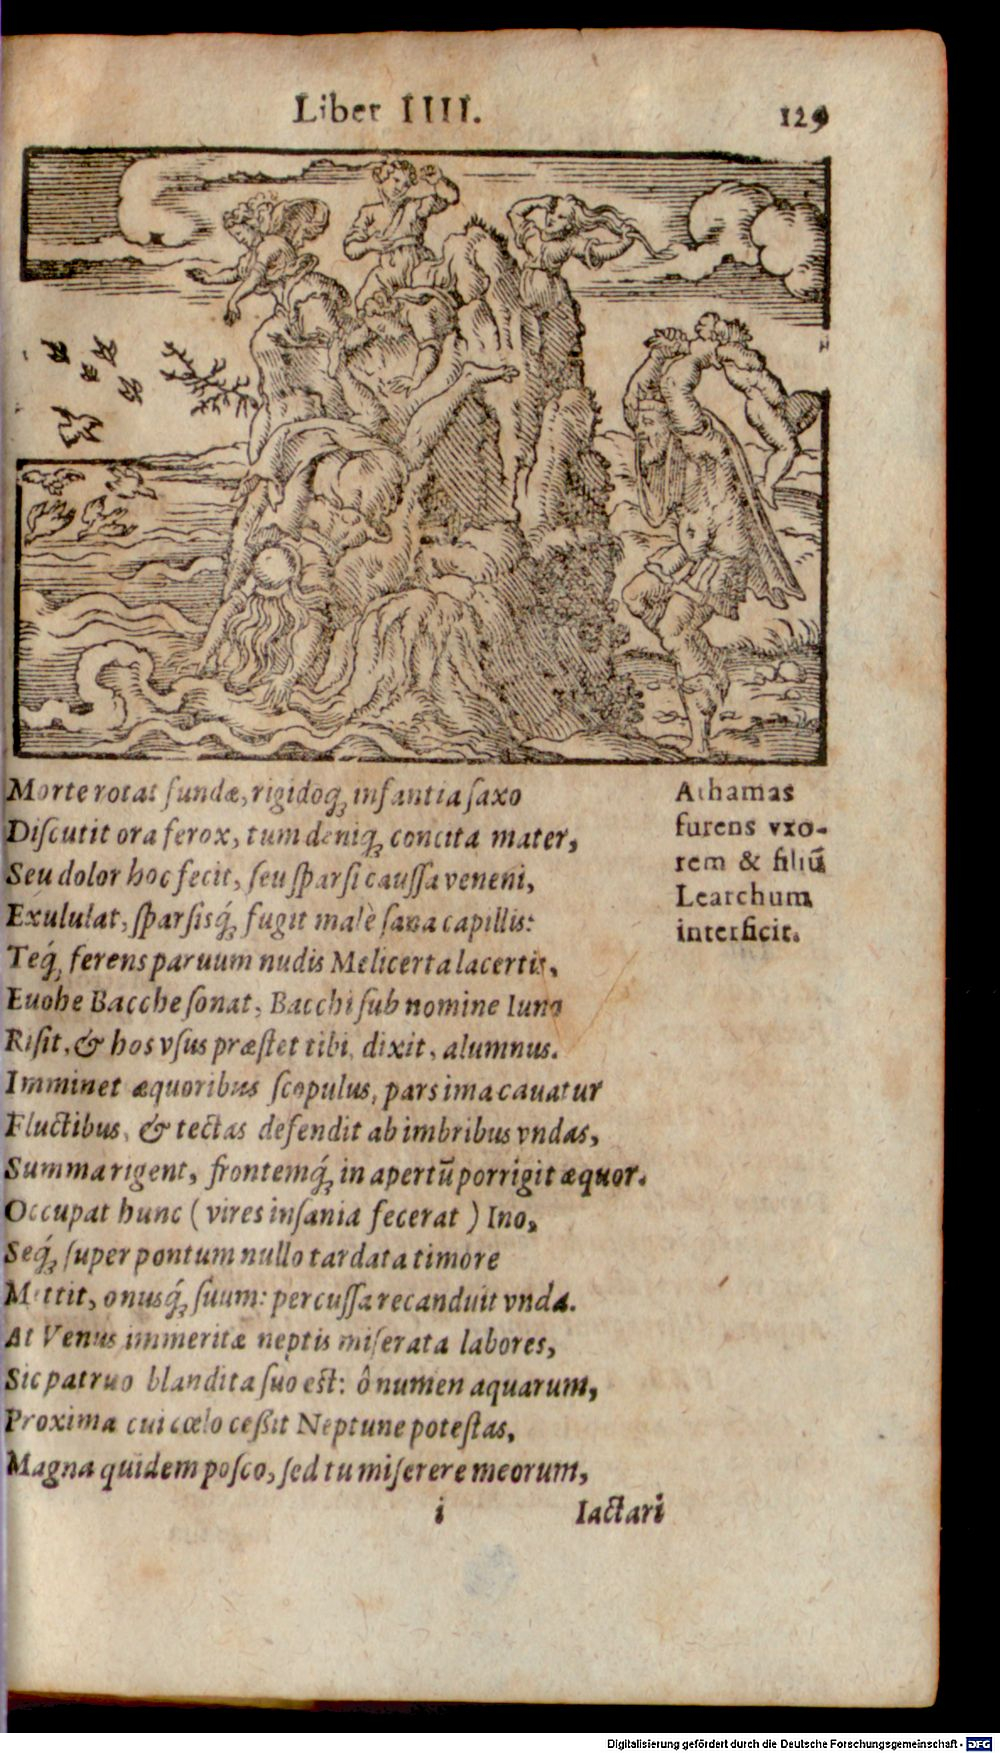 Liber IIII.
129
Morte rotat fundæ, rigidoq́ꝫ infantia ſaxo
Diſcutit ora ferox, tum deniqꝫ concita mater,
Seu dolor hoc fecit, ſeu ſparſi cauſſa veneni,
Exululat, ſparſisq́ꝫ fugit malè ſana capillis:
Teq́ꝫ ferens paruum nudis Melicerta lacertis,
Euohe Bacche ſonat, Bacchi ſub nomine Iuno
Riſit, & hos vſus præſtet tibi, dixit, alumnus.
Imminet æquoribus ſcopulus, pars ima cauatur
Fluctibus, & tectas defendit ab imbribus vndas,
Summa rigent, frontemq́ꝫ in apertū porrigit æquor.
Occupat hunc ( vires inſania fecerat ) Ino,
Seq́ꝫ ſuper pontum nullo tardata timore
Mittit, onusq́ꝫ ſuum: percuſſa recanduit vnda.
At Venus immeritæ neptis miſerata labores,
Sic patruo blandita ſuo est: ô numen aquarum,
Proxima cui cœlo ceßit Neptune poteſtas,
Magna quidem poſco, ſed tu miſerere meorum,
i Iactari
Athamas
furens vxo-
rem & filiū
Learchum
interficit.
Digitalisierung gefördert durch die Deutsche Forschungsgemeinschaft - DFG